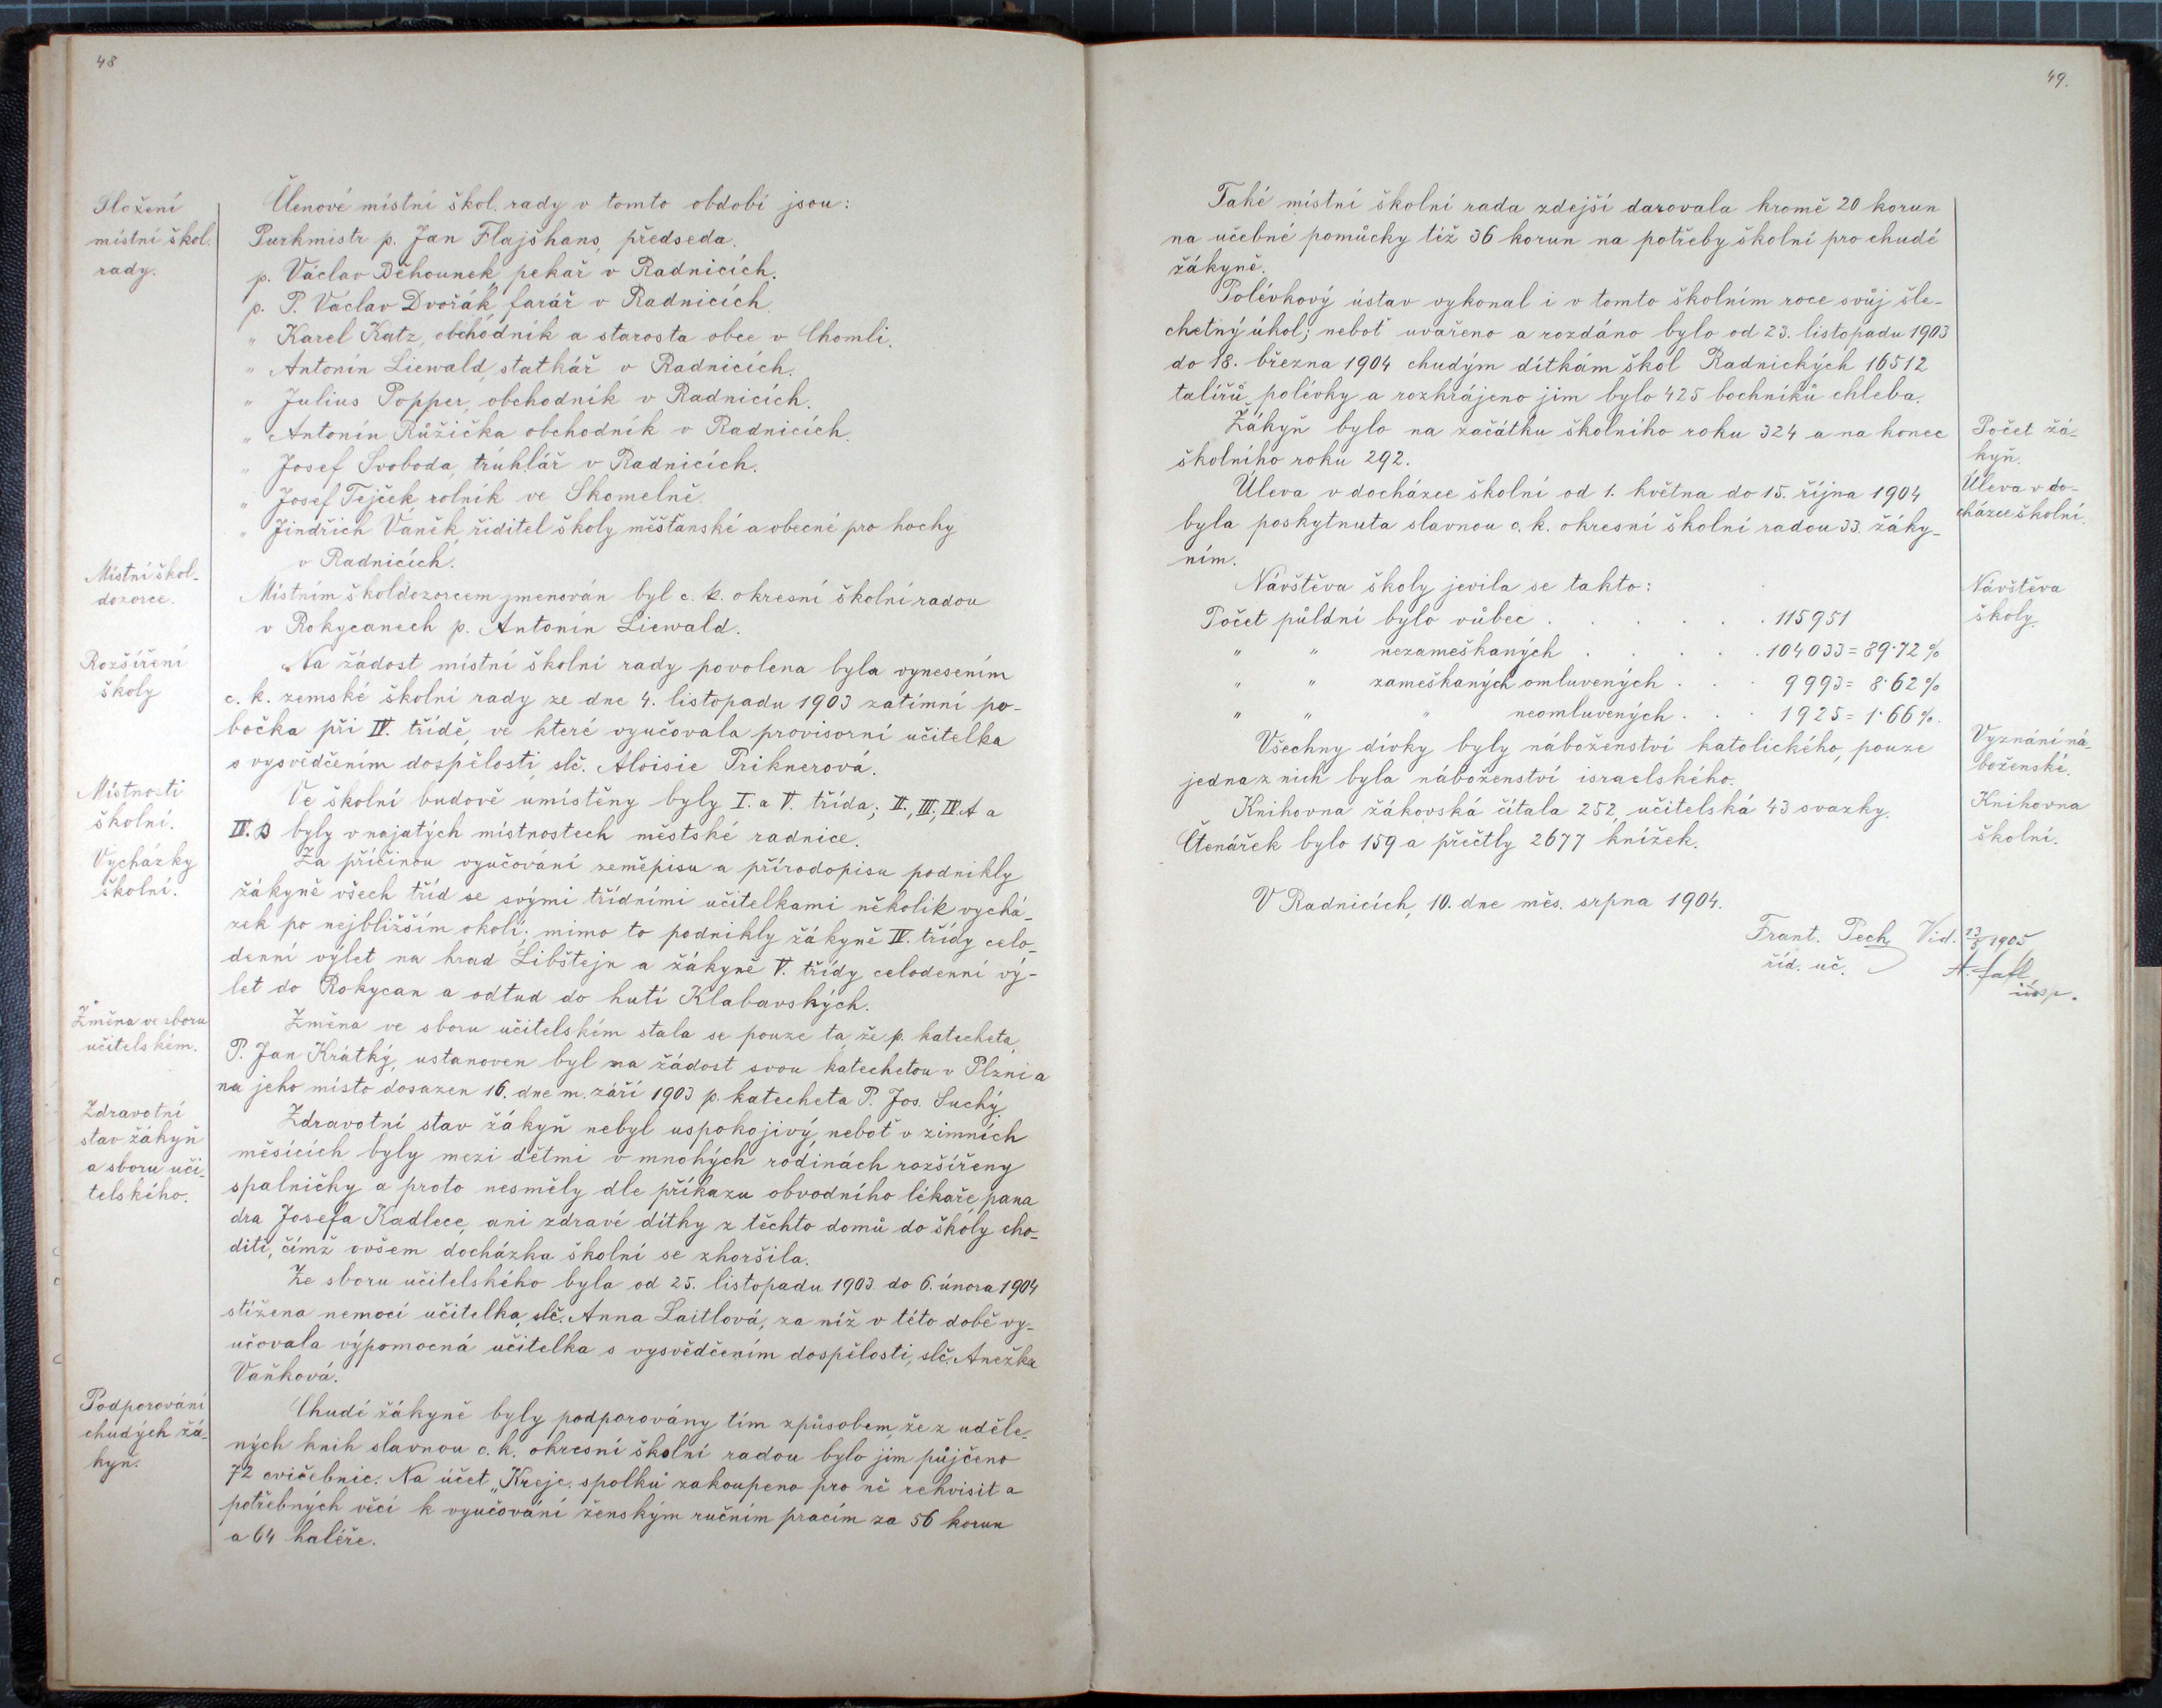 48
Složení
místní škol.
rady.
Členové místní škol. rady v tomto období jsou:
Purkmistr p. Jan Flajšhans, předseda.
p. Václav Děhounek, pekař v Radnicích.
p. P. Václav Dvořák, farář v Radnicích.
" Karel Katz, obchodník a starosta obce v Chomli.
" Antonín Liewald, statkář v Radnicích.
" Julius Popper, obchodník v Radnicích.
" Antonín Růžička obchodník v Radnicích.
" Josef Svoboda, truhlář v Radnicích.
" Josef Tejček, rolník ve Skomelně.
" Jindřich Vaněk, řiditel školy měšťanské a obecné pro hochy
v Radnicích.
Místní škol-
dozorce.
Místním školdozorcem jmenován byl c. k. okresní školní radou
v Rokycanech p. Antonín Liewald.
Rozšíření
školy
Na žádost místní školní rady povolena byla vynesením
c. k. zemské školní rady ze dne 4. listopadu 1903 zatímní po-
bočka při IV. třídě, ve které vyučovala provisorní učitelka
s vysvědčením dospělosti, slč. Aloisie Triknerová.
Místnosti
školní.
Ve školní budově umístěny byly I. a V. třída; II., III., IV. A a
IV. B byly v najatých místnostech městské radnice.
Vycházky
školní.
Za příčinou vyučování zeměpisu a přírodopisu podnikly
žákyně všech tříd se svými třídními učitelkami několik vychá-
zek po nejbližším okolí; mimo to podnikly žákyně IV. třídy celo-
denní výlet na hrad Libštejn a žákyně V. třídy celodenní vý-
let do Rokycan a odtud do hutí Klabavských.
Změna ve sboru
učitelském.
Změna ve sboru učitelském stala se pouze ta, že p. katecheta,
P. Jan Krátký, ustanoven byl na žádost svou katechetou v Plzni a
na jeho místo dosazen 16. dne m. září 1903 p. katecheta P. Jos. Suchý.
Zdravotní
stav žákyň
a sboru uči-
telského.
Zdravotní stav žákyň nebyl uspokojivý, neboť v zimních
měsících byly mezi dětmi v mnohých rodinách rozšířeny
spalničky a proto nesměly dle příkazu obvodního lékaře, pana
dra Josefa Kadlece, ani zdravé dítky z těchto domů do školy cho-
diti, čímž ovšem docházka školní se zhoršila.
Ze sboru učitelského byla od 25. listopadu 1903 do 6. února 1904
stížena nemocí učitelka, slč. Anna Laitlová, za níž v této době vy-
učovala výpomocná učitelka s vysvědčením dospělosti, slč. Anežka
Vaňková.
Podporování
chudých žá-
kyň.
Chudé žákyně byly podporovány tím způsobem, že z uděle-
ných knih slavnou c. k. okresní školní radou bylo jim půjčeno
72 cvičebnic. Na účet „Krejc. spolku" zakoupeno pro ně rekvisit a
potřebných věcí k vyučování ženským ručním pracím za 56 korun
a 64 haléře.
49.
Také místní školní rada zdejší darovala kromě 20 korun
na učebné pomůcky též 36 korun na potřeby školní pro chudé
žákyně.
Polévkový ústav vykonal i v tomto školním roce svůj šle-
chetný úkol; neboť uvařeno a rozdáno bylo od 23. listopadu 1903
do 18. března 1904 chudým dítkám škol Radnických 16512
talířů polévky a rozkrájeno jim bylo 425 bochníků chleba.
Žákyň bylo na začátku školního roku 324 a na konec
školního roku 292.
Počet žá-
kyň.
Úleva v docházce školní od 1. května do 15. října 1904
byla poskytnuta slavnou c. k. okresní školní radou 33. žáky-
ním.
Úleva v do-
cházce školní.
Návštěva školy jevila se takto:
Návštěva
školy.
Počet půldní bylo vůbec . . . . . . 115951
" " nezameškaných . . . . . 104033 = 89·72 %
" " zameškaných omluvených . . . 9993 = 8·62 %
" " " neomluvených . . . 1925 = 1·66 %.
Všechny dívky byly náboženství katolického, pouze
jedna z nich byla náboženství israelského.
Vyznání ná-
boženské.
Knihovna žákovská čítala 252, učitelská 43 svazky.
Čtenářek bylo 159 a přečtly 2677 knížek.
Knihovna
školní.
V Radnicích, 10. dne měs. srpna 1904.
Frant. Pech Vid. 23/5 1905
říd. uč.
insp.